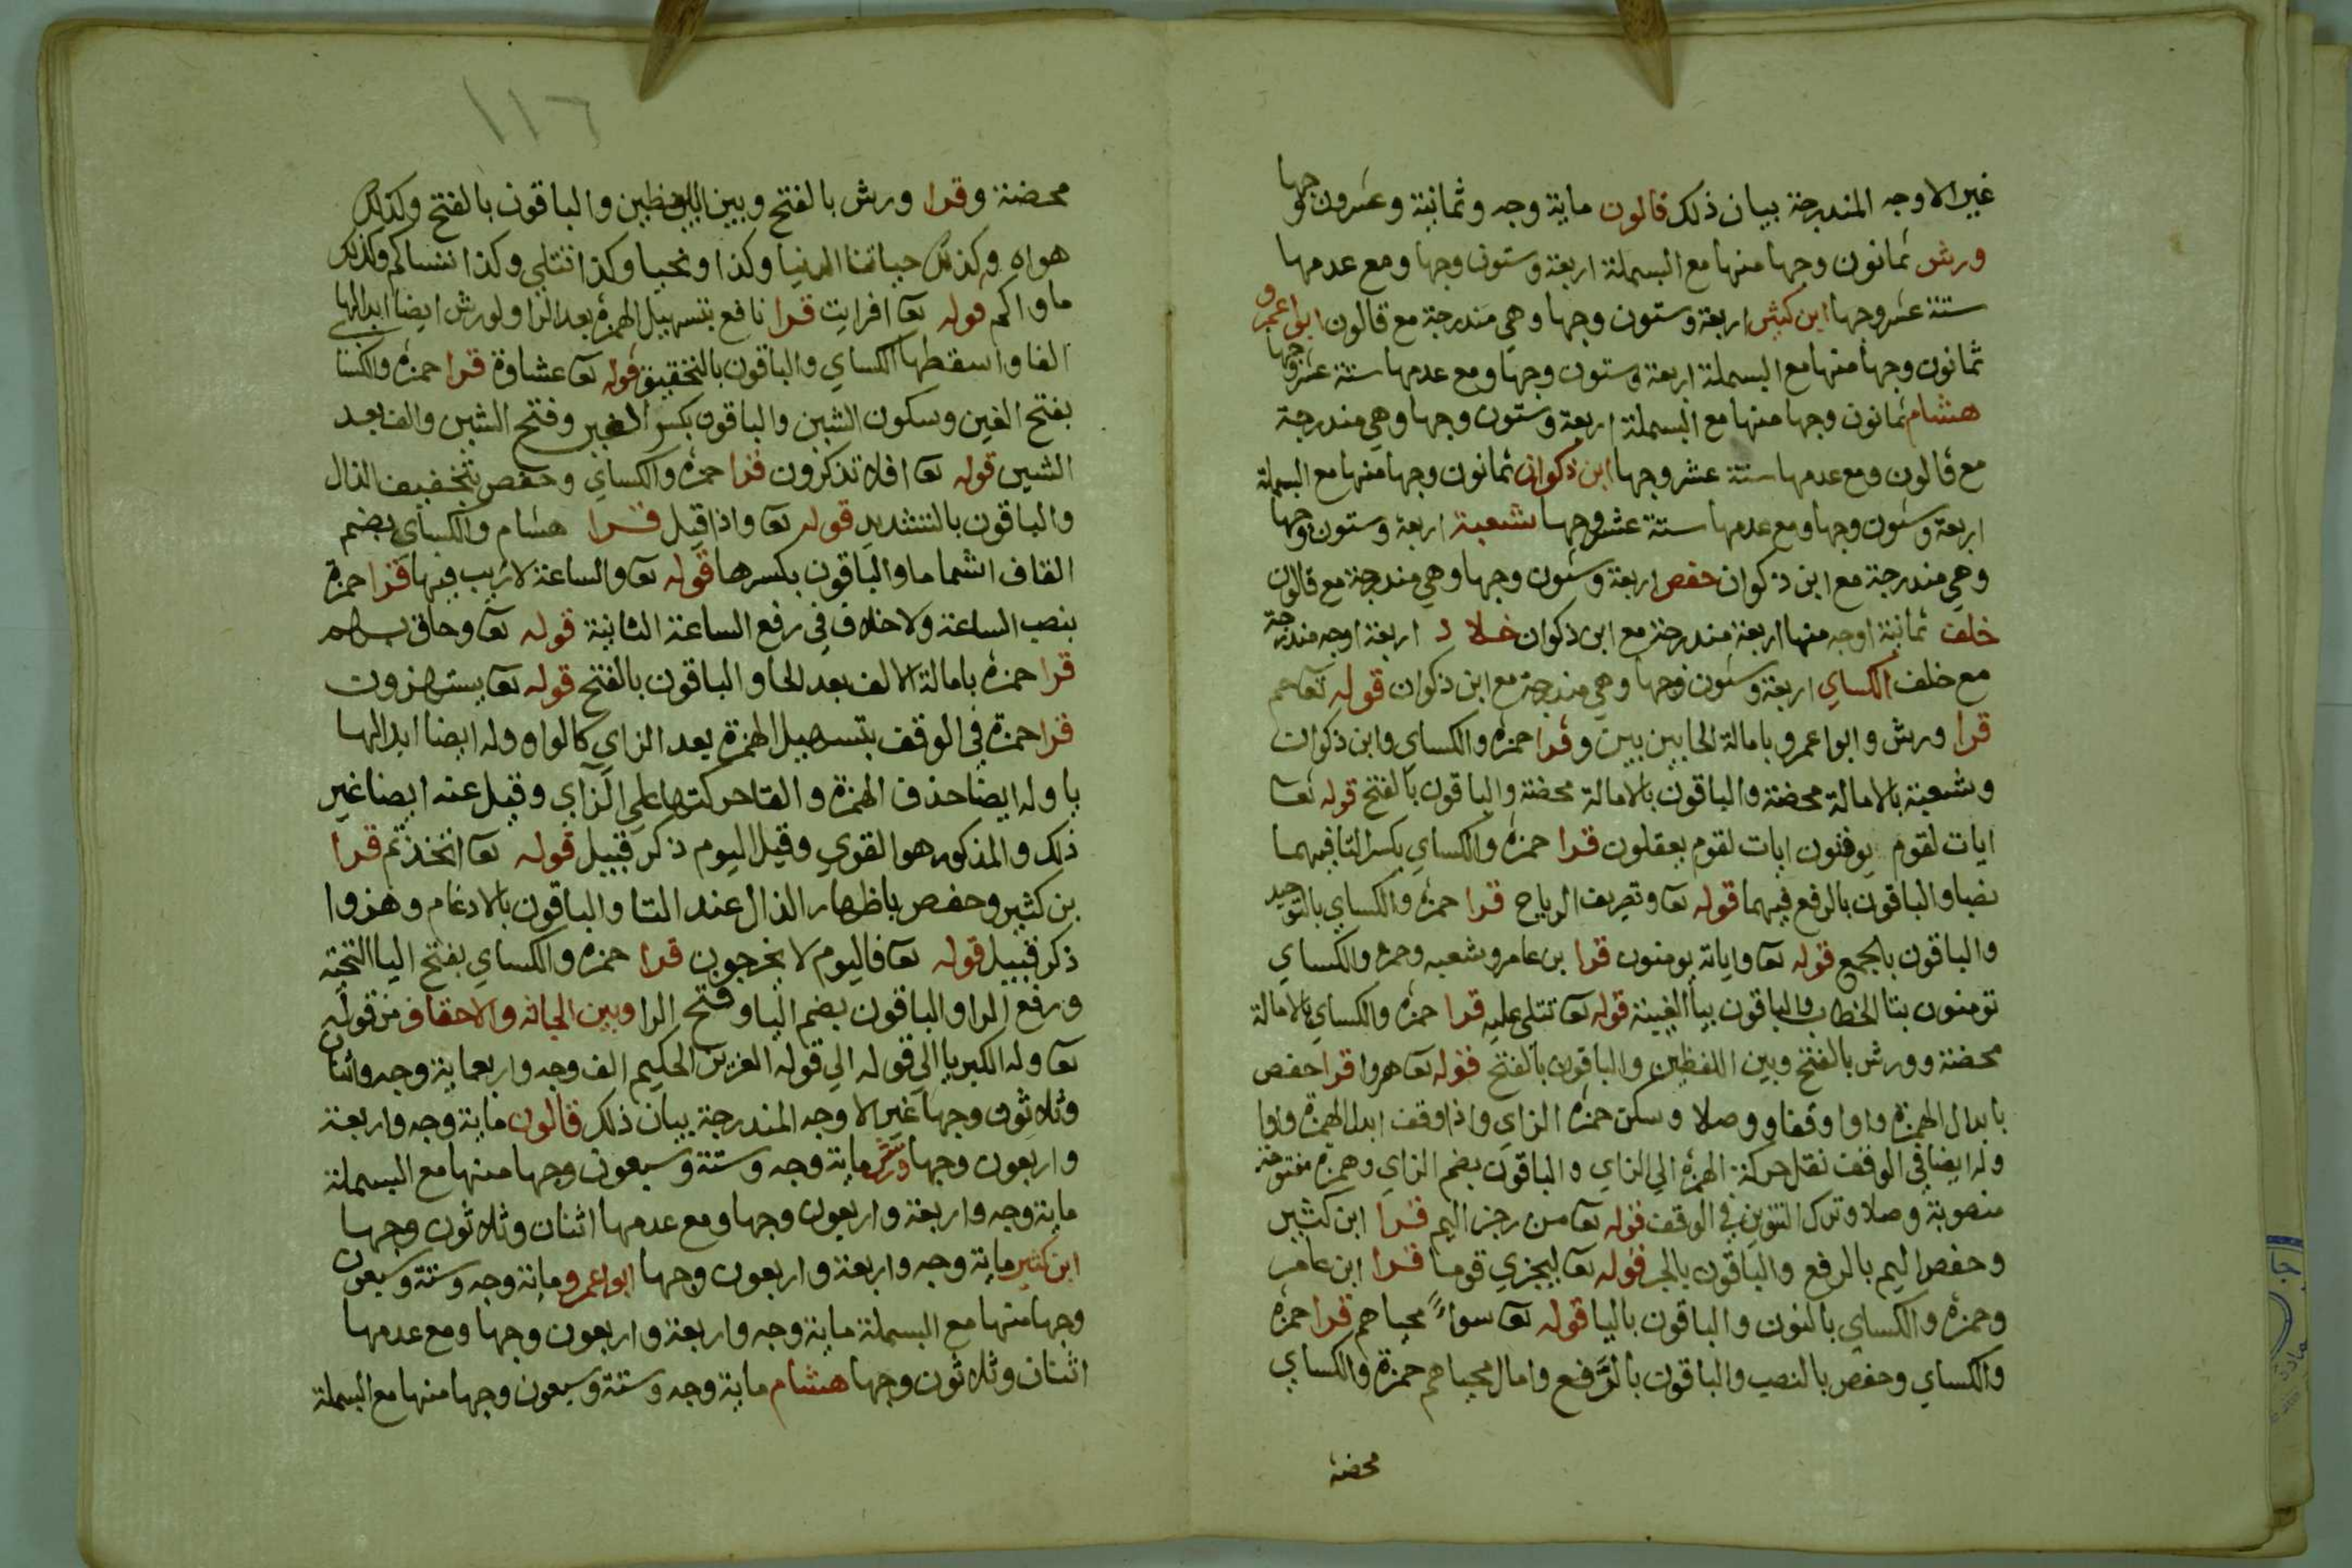 غير الاوجه المندرجة بيان ذلك قالون ماية وجه وثمانية وعشرون وجها
ورش ثمانون وجها منها مع البسملة اربعة وستون وجها ومع عدمها
ستة عشر وجها ابن كثير اربعة وستون وجها وهي مندرجة مع قالون ابو عمرو
ثمانون وجها منها مع البسملة اربعة وستون وجها ومع عدمها ستة عشر وجها
هشام ثمانون وجها منها مع البسملة اربعة وستون وجها وهي مندرجة
مع قالون ومع عدمها ستة عشر وجها ابن ذكوان ثمانون وجها منها مع البسملة
اربعة وستون وجها ومع عدمها ستة عشر وجها شعبة اربعة وستون وجها
وهي مندرجة مع ابن ذكوان حفص اربعة وستون وجها وهي مندرجة مع قالون
خلف ثمانية اوجه منها اربعة مندرجة مع ابن ذكوان خلاد اربعة اوجه مندرجة
مع خلف الكساي اربعة وستون وجها وهي مندرجة مع ابن ذكوان قوله تعا حم
قرا ورش وابو اعمرو بامالة الحا بين بين وقرا حمزه والكساي وابن ذكوان
وشعبة بالامالة محضة والباقون بالامالة محضة والباقون بالفتح قوله تعا
ايات لقوم يوقنون ايات لقوم يعقلون قرا حمزه والكساي بكسر التا فيهما
نصبا والباقون بالرفع فيهما قوله تعا وتصريف الرياح قرا حمزه والكساي بالتوحيد
والباقون بالجمع قوله تعا واياته يومنون قرا بن عامر وشعبه وحمزه والكساي
تومنون بتا الخطاب والباقون بيا الغيبة قوله تعا تتلى عليه قرا حمزه والكساي بالامالة
محضة وورش بالفتح وبين اللفظين والباقون بالفتح قوله تعا هزوا قرا حفص
بابدال الهمزة واوا وقفا ووصلا وسكن حمزه الزاي واذا وقف ابدل الهمزة واوا
وله ايضا في الوقف نقل حركة الهمزه الي الزاي والباقون بضم الزاي وهمزه مفتوحة
منصوبة وصلا وترك التنوين في الوقف قوله تعا من رجز اليم قرا ابن كثير
وحفص اليم بالرفع والباقون بالجر قوله تعا ليجزي قوما قرا ابن عامر
وحمزه والكساي بالنون والباقون باليا قوله تعا سواءً محياهم قرا حمزه
والكساي وحفص بالنصب والباقون بالرَّفع وامال محياهم حمزة والكساي
محضة
١١٦
محضة وقرا ورش بالفتح وبين اللفظين والباقون بالفتح وكذلك
هواه وكذلك حياتنا الدنيا وكذا ونحيا وكذا تتلى وكذا ننساكم وكذلك
ماواكم قوله تعا افرايت قرا نافع بتسهيل الهمزه بعد الرا ولورش ايضا ابدالها
الفا واسقطها الكساي والباقون بالتحقيق قوله تعا غشاوة قرا حمزه والكسا
بفتح الغين وسكون الشين والباقون بكسر الغين وفتح الشين والف بعد
الشين قوله تعا افلا تذكرون قرا حمزه والكساي وحفص بتخفيف الذال
والباقون بالتشديد قوله تعا واذا قيل قرا هشام والكساي بضم
القاف اشماما والباقون بكسرها قوله تعا والساعة لا ريب فيها قرا حمزة
بنصب الساعة ولا خلاف في رفع الساعة الثانية قوله تعا وحاق بهم
قرا حمزه بامالة الالف بعد الحا والباقون بالفتح قوله تعا يستهزون
قرا حمزة في الوقف بتسهيل الهمزة بعد الزاي كالواو وله ايضا ابدالها
يا وله ايضا حذف الهمزه والقا حركتها علي الزاي وقيل عنه ايضا غير
ذلك والمذكور هو القوي وقيل اليوم ذكر قبيل قوله تعا اتخذتم قرا
بن كثير وحفص باظهار الذال عند التا والباقون بالادغام وهزوا
ذكر قبيل قوله تعا فاليوم لا يخرجون قرا حمزه والكساي بفتح اليا التحتيه
ورفع الرا والباقون بضم اليا وفتح الرا وبين الجاثه والاحقاف من قوله
تعا وله الكبريا الي قوله الي قوله العزيز الحكيم الف وجه واربعماية وجه واثنان
وثلاثون وجها غير الاوجه المندرجة بيان ذلك قالون ماية وجه واربعة
واربعون وجها ورش ماية وجه وستة وسبعون وجها منها مع البسملة
ماية وجه واربعة واربعون وجها ومع عدمها اثنان وثلاثون وجها
ابن كثير ماية وجه واربعة واربعون وجها ابو اعمرو ماية وجه وستة وسبعون
وجها منها مع البسملة ماية وجه واربعة واربعون وجها ومع عدمها
اثنان وثلاثون وجها هشام ماية وجه وستة وسبعون وجها منها مع البسملة